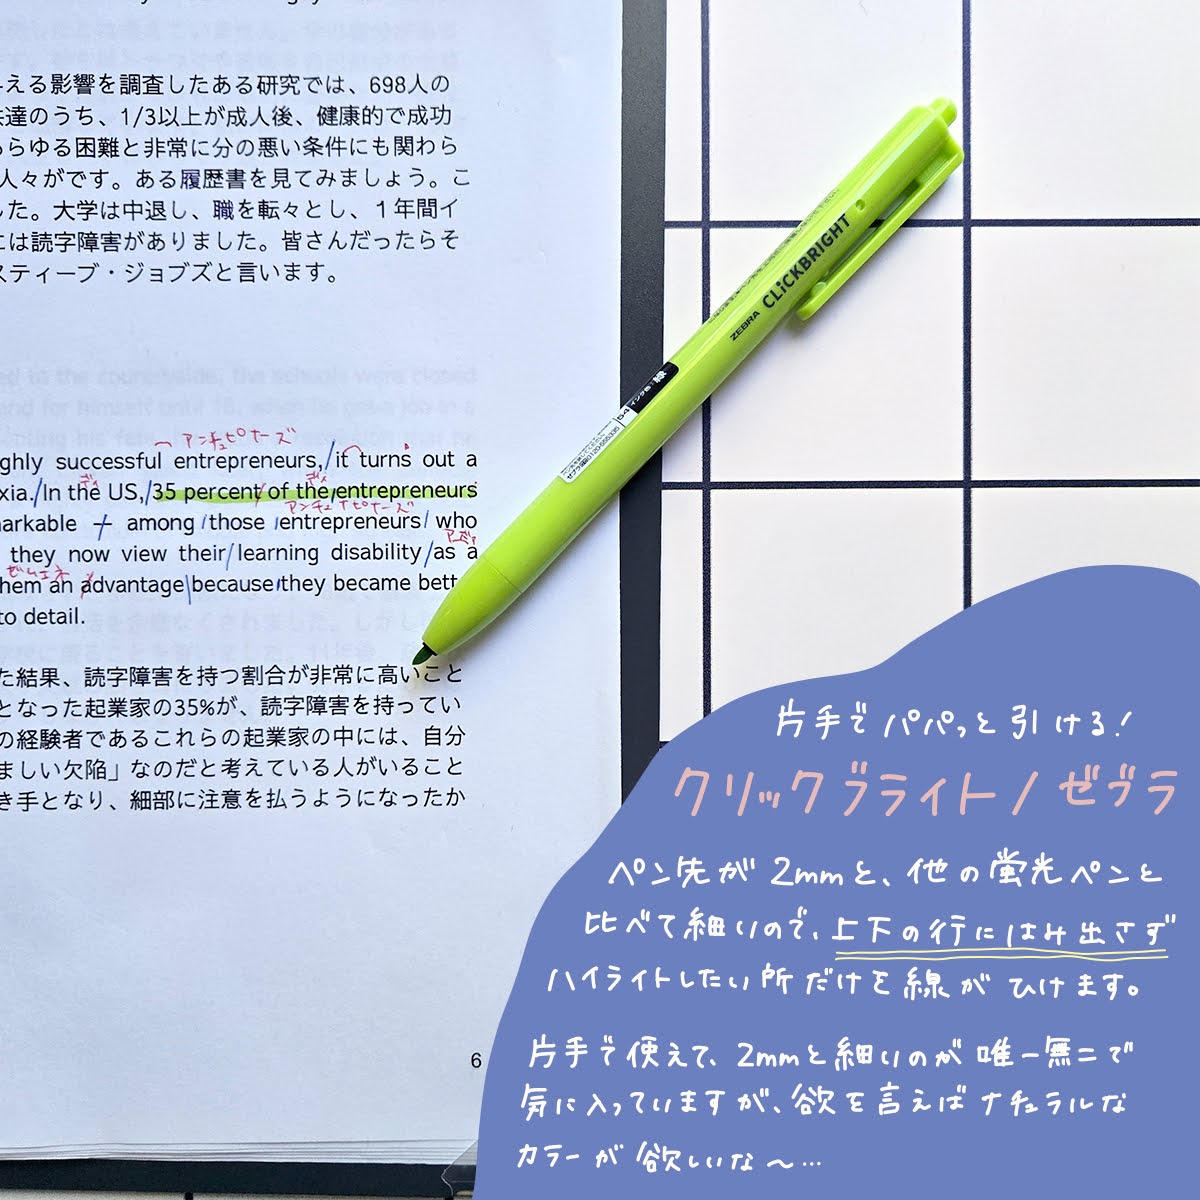 える影響を調査したある研究では、698人の
達のうち、1/3以上が成人後、健康的で成功
らゆる困難と非常に分の悪い条件にも関わら
人々がです。ある履歴書を見てみましょう。こ
した。大学は中退し、職を転々とし、1年間イ
には読字障害がありました。皆さんだったらそ
スティーブ・ジョブズと言います。
アンチュピナーズ
ghly successful entrepreneurs, / it turns out a
xia. / In the US, / 35 percent of the entrepreneurs
アンチュナピナーズ
arkable + among / those / entrepreneurs / who
they now view their / learning disability / as a
hem an advantage | because / they became bett
to detail.
た結果、読字障害を持つ割合が非常に高いこと
となった起業家の35%が、読字障害を持ってい
の経験者であるこれらの起業家の中には、自分
ましい欠陥」なのだと考えている人がいること
き手となり、細部に注意を払うようになったか
6
ZEBRA CLiCKBRIGHT
インク色:緑
片手でパパっと引ける!
クリックブライト/ゼブラ
ペン先が2mmと、他の蛍光ペンと
比べて細いので、上下の行にはみ出さず
ハイライトしたい所だけを線がひけます。
片手で使えて、2mmと細いのが唯一無二で
気に入っていますが、欲を言えばナチュラルな
カラーが欲しいな〜…